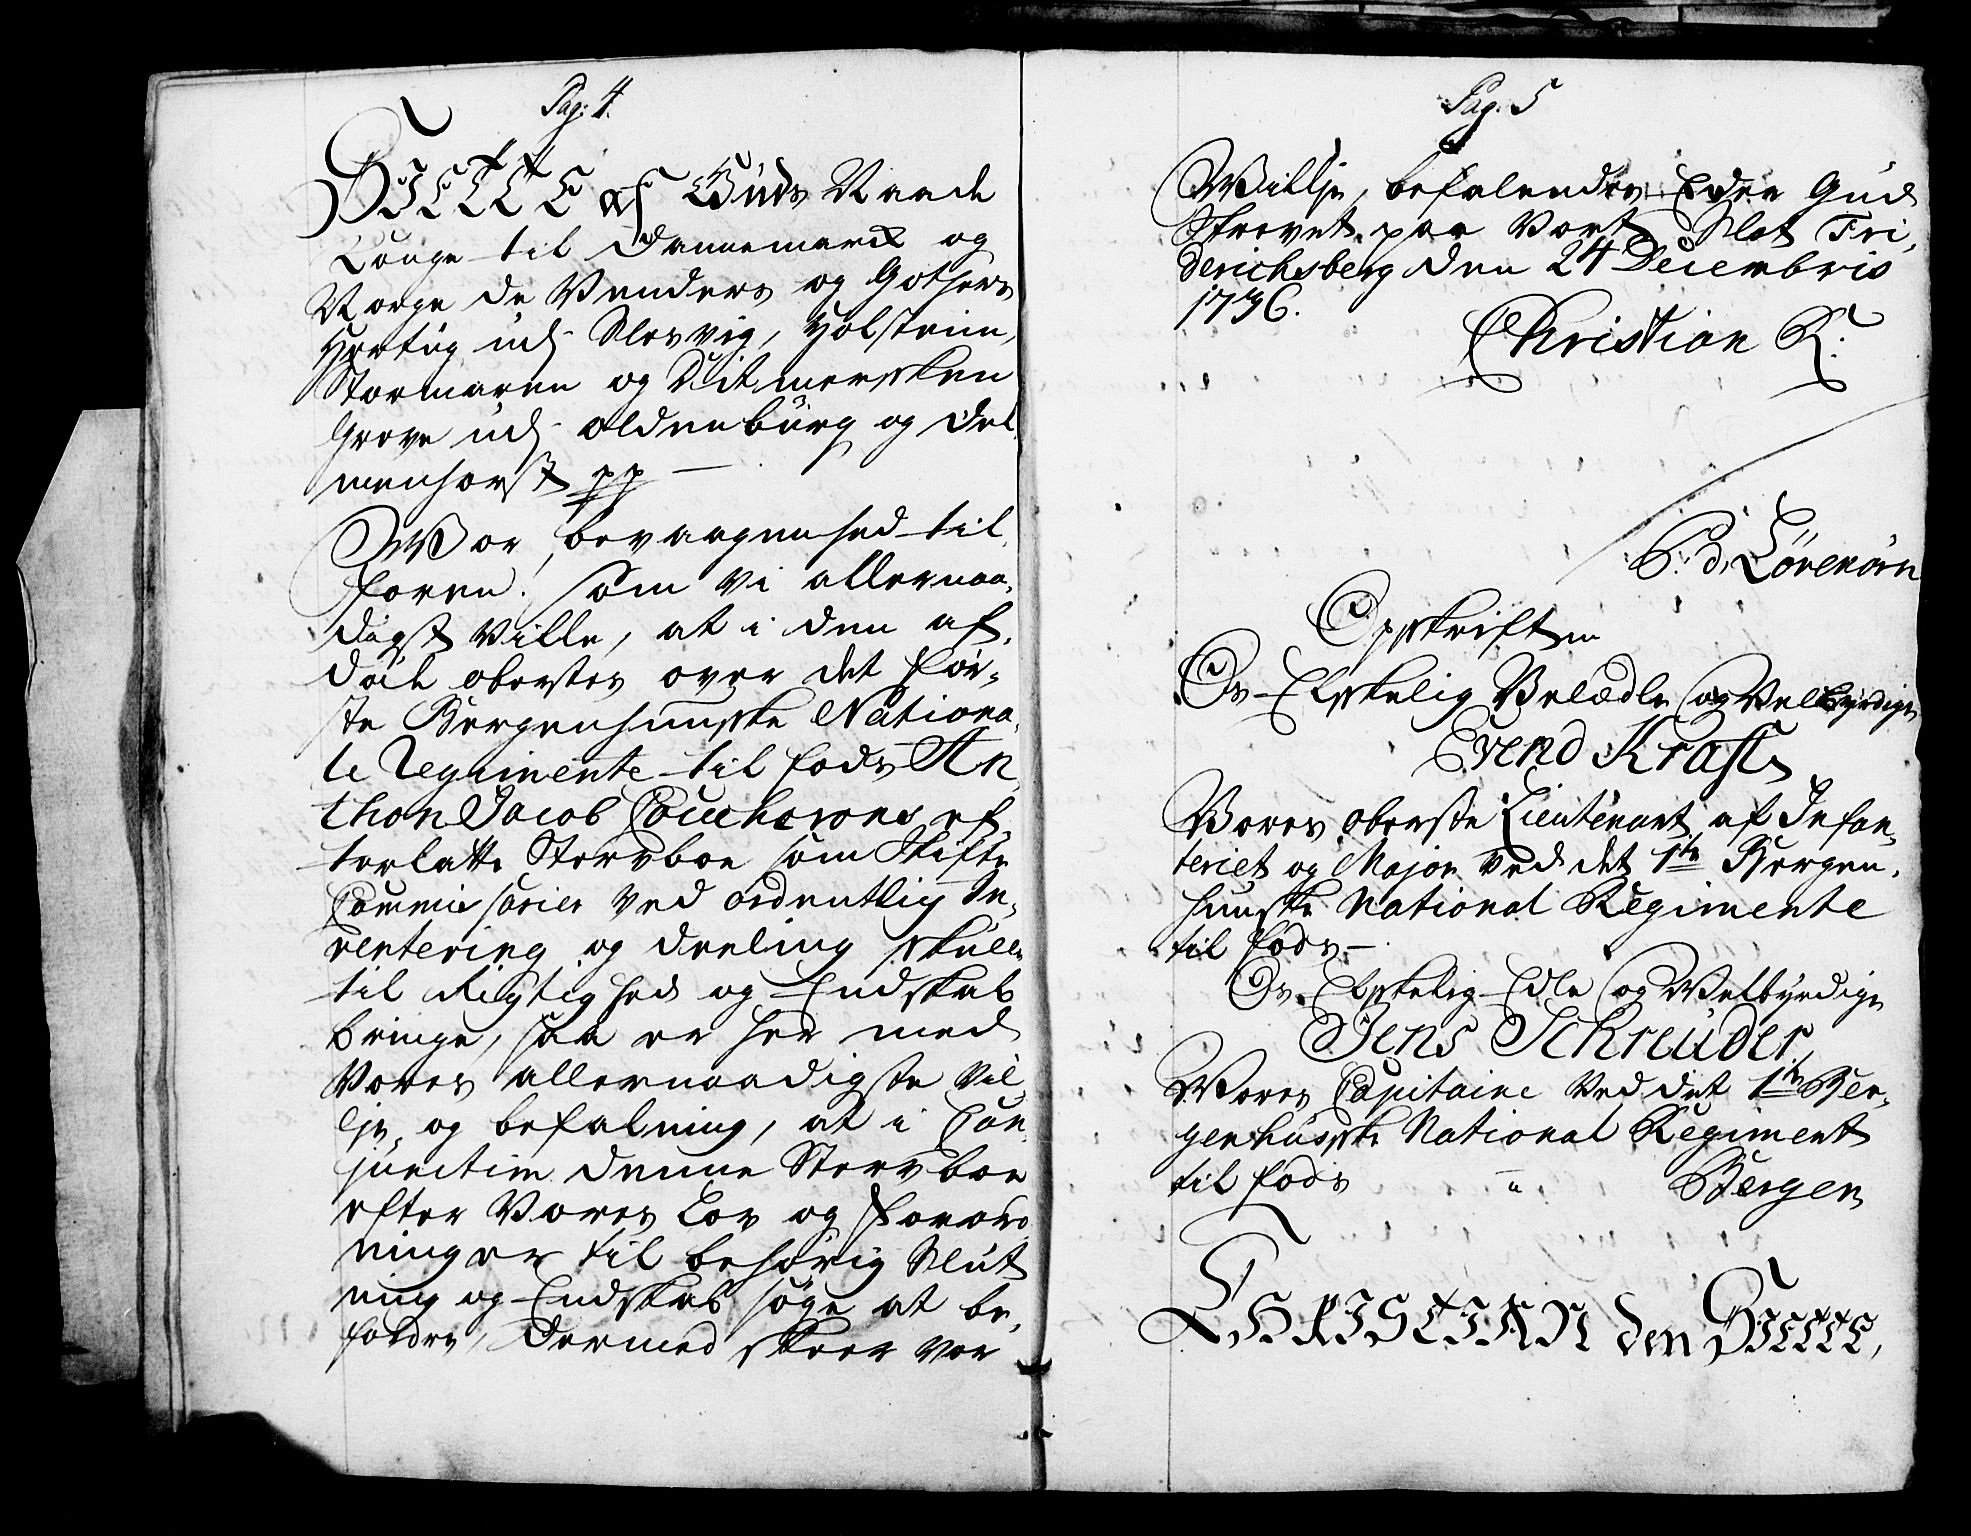 Pag: 4.
SIETTE af Guds Naade
Konge til Dannemarck og
Norge de Venders og Gothers
Hertug udj Slesvig, Holsteen,
Stormaren og Ditmersken
Greve udj Oldenburg og Del,
menhorst pp —
Wor bevaagenhed til,
foren! Som Vi allernaa,
digst Ville, at i den af,
död Oberstes over det För,
ste Bergenhuuske Nationa,
le Regimente til fods An
thon Jacob Coucherons ef,
terlatte Sterfboe som Skifte
Commissarier Ved ordentlig In,
ventering og Deeling skulle
til Rigtighed og Endskab
bringe, saa er her med
Vores allernaadigste Vil,
lje, og befalning, at i Con,
junctim denne Sterfboe
efter Vores Lov og Forord,
ninger til behörig Slut,
ning og Endskab söge at be,
fordre, Dermed skeer Vor
Pag. 5
Willje, befalendes Eder Gud
Skrevet paa Vort Slot Fri,
derichsberg den 24 Decembris
1736.
Christian R:
P: d. Lövenörn
Opskriften
Os Elskelig Velædle og Velbyrdige
Svend Kraft,
Vores Oberste Lieutenant af Infan,
teriet og Major Ved det 1te Bergen,
huuske National Regimente
til fods —
Os Elskelig Edle og Velbyrdige
Jens Schreuder,
Vores Capitaine Ved det 1te Ber,
genhuusske National Regiment
til fods " Bergen
CHRISTIAN den SIETTE,